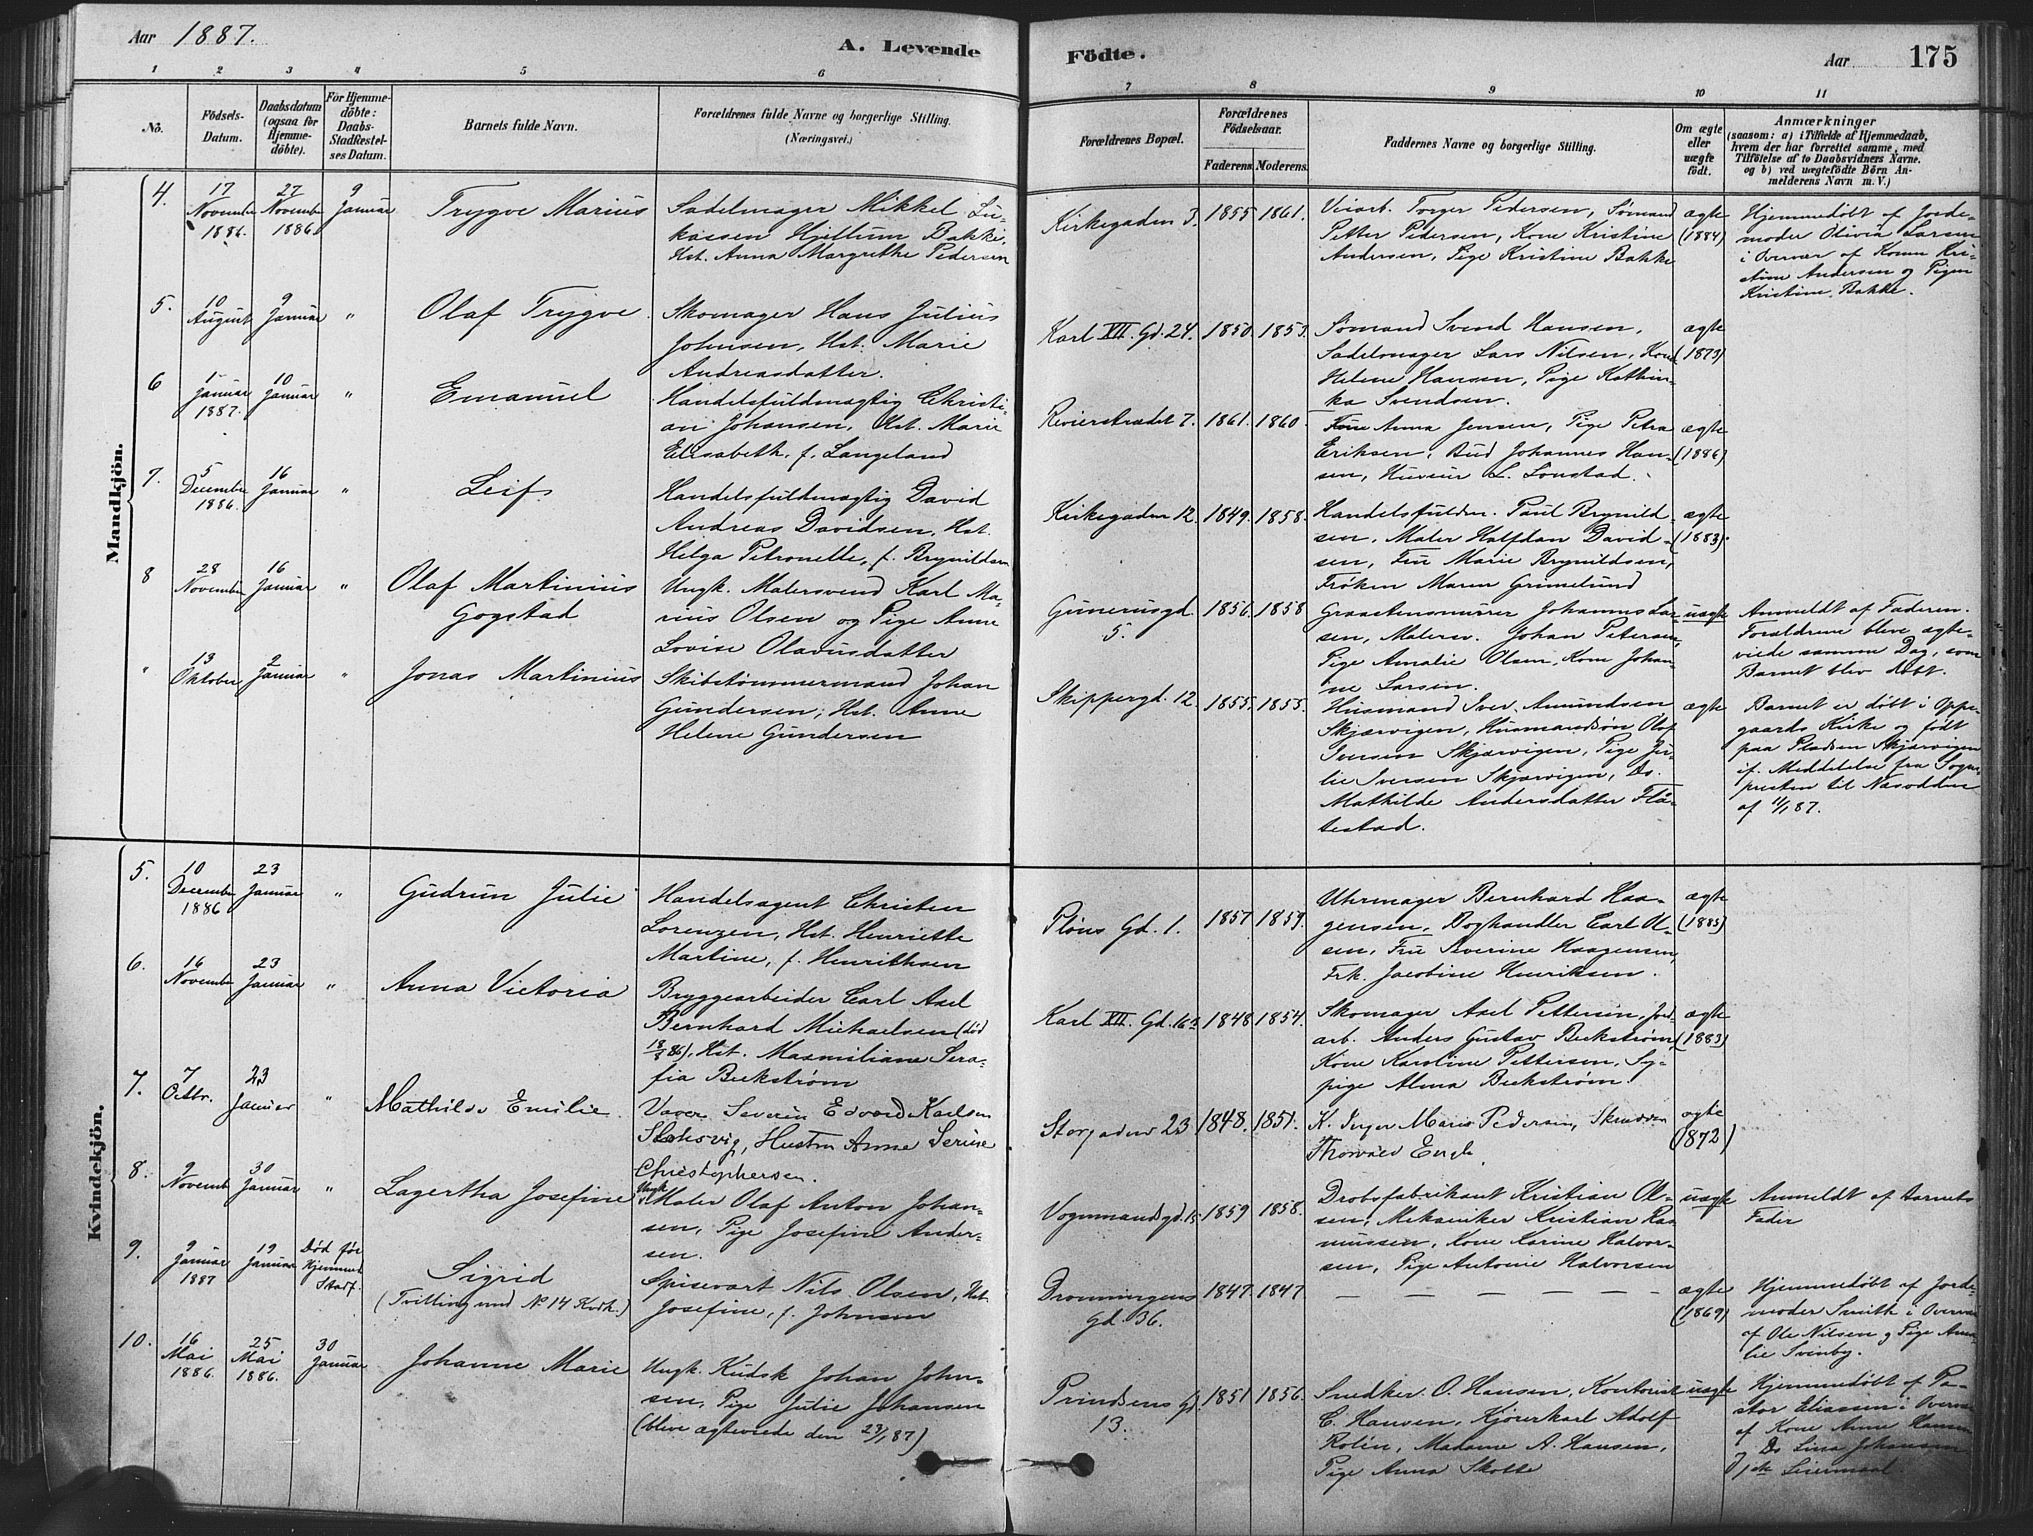 Aar 1887.
A. Levende
Födte.
Aar
175
1 2 3 4 5 6
7 8 9 10 11
No.
Födsels-
Datum.
Daabsdatum
(ogsaa for
Hjemme-
döbte).
For Hjemme-
döbte:
Daabs-
Stadfestel-
ses Datum.
Barnets fulde Navn.
Forældrenes fulde Navne og borgerlige Stilling.
(Næringsvei.)
Forældrenes Bopæl.
Forældrenes
Födselsaar.
Faderens Moderens.
Faddernes Navne og borgerlige Stilling.
Om ægte
eller
uægte
födt.
Anmærkninger
(saasom: a) i Tilfelde af Hjemmedaab,
hvem der har forrettet samme, med
Tilföielse af to Daabsvidners Navne.
og b) ved uægtefödte Börn An-
melderens Navn m.V.)
Mandkjön.
4.
17
November
1886.
27
November
1886.
9
Januar
Trygve Marius
Sadelmager Mikkel Lu-
kassen Hjellum Bakke,
Hst. Anna Margrethe Pedersen
Kirkegaden 3.
1855
1861.
Veiarb. Torger Pedersen, Sømand
Petter Pedersen, Kone Kristine
Andersen, Pige Kristine Bakke
ægte
(1884)
Hjemmedøbt af Jorde-
moder Olivia Larsen
i Overvær af Konen Kri-
stine Andersen og Pigen
Kristine Bakke.
5.
10
August
9
Januar
"
Olaf Trygve.
Skomager Hans Julius
Johnsen, Hst. Marie
Andreasdatter.
Karl XII. Gd. 24.
1850.
1853.
Sømand Svend Hansen,
Sadelmager Lars Nilsen, Kone
Helene Hansen, Pige Kathin-
ka Svendsen.
ægte
(1873)
6
1
Januar
1887.
10
Januar
"
Emanuel
Handelsfuldmægtig Christi-
an Johansen, Hst. Marie
Elisabeth, f. Langeland
Revierstrædet 7.
1861.
1860
Frue Anna Jensen, Pige Petra
Eriksen, Bud Johannes Han-
sen, Huseier L. Lonstad.
ægte
(1886)
7.
5
December
1886.
16
Januar
"
Leif
Handelsfuldmægtig David
Andreas Davidsen, Hst.
Helga Petronelle, f. Brynildsen
Kirkegaden 12.
1849.
1858.
Handelsfuldm. Paul Brynild-
sen, Maler Halfdan David-
sen, Fru Marie Brynildsen,
Frøken Maren Grimelund
ægte
(1883).
8
28
November
16
Januar
"
Olaf Martinius
Gogstad
Ungk. Malersvend Karl Ma-
rius Olsen og Pige Anne
Lovise Olavusdatter
Gunerusgd.
5.
1856.
1858
Graastensmurer Johannes Lar-
sen, Malersv. Johan Petersen,
Pige Amalie Olsen, Kone Johan-
ne Larsen.
uægte
Anmeldt af Faderen.
Forældrene bleve ægte-
viede samme Dag, som
Barnet blev døbt.
"
13
Oktober
2
Januar
"
Jonas Martinius
Skibstømmermand Johan
Gundersen, Hst. Anne
Helene Gundersen
Skippergd. 12.
1855.
1855.
Husmand Iver Amundsen
Skjærvigen, Husmandssøn Olaf
Iversen Skjærvigen, Pige Ju-
lie Iversen Skjærvigen, Do.
Mathilde Andersdatter Flå-
testad.
ægte
Barnet er døbt i Oppe-
gaards Kirke og født
paa Pladsen Skjærvigen
if. Meddelelse fra Sogne-
presten til Næsodden
af 11/1 87.
Kvindekjön.
5.
10
December
1886
23
Januar
"
Gudrun Julie
Handelsagent Christen
Lorenzen, Hst. Henriette
Martine, f. Henrithsen
Pløns Gd. 1.
1857
1859.
Uhrmager Bernhard Haa-
gensen, Boghandler Carl Ol-
sen, Fru Severine Haagensen,
Frk. Jacobine Henriksen.
ægte
(1885)
6.
16
November
23
Januar
"
Anna Victoria
Bryggearbeider Carl Axel
Bernhard Michaelsen (død
18/3 86), Hst. Maxmiliane Sera-
fia Beckstrøm
Karl XII. Gd. 16
1848
1854.
Skomager Axel Pettersen, Jord-
arb. Anders Gustav Beckstrøm,
Kone Karoline Pettersen, Sy-
pige Alma Beckstrøm.
ægte
(1883)
7.
7
Octbr.
23
Januar
"
Mathilde Emilie.
Severin Edvard Karlsen
Hustru Anne Serine
Christophersen.
Storgaden 23
1848.
1851.
K. Inger Marie Pedersen,
Thorvald
ægte
(1872)
8.
9
Novemb
30
Januar
"
Lagertha Josefine
Ungk.
Maler Olaf Anton Johan-
sen, Pige Josefine Ander-
sen.
Vognmandsgd. 15
1859
1858.
Drobsfabrikant Kristian Ol-
sen, Mekaniker Kristian Ras-
mussen, Kone Karine Halvor-
sen, Pige Antonie Halvorsen
uægte
Anmeldt af Barnets
Fader
9.
9
Januar
1887
19
Januar
Død før
Hjemmed.
Stadf.
Sigrid
(Tvilling med No 14 Kvdk.)
Spisevært Nils Olsen, Hst.
Josefine, f. Johnsen
Dronningens
Gd. 36.
1847.
1847
— — — — — —
ægte
(1869)
Hjemmedøbt af Jorde-
moder Smith i Overvær
af Ole Nilsen og Pige Ama-
lie Svenby.
10.
16
Mai
1886.
25
Mai
1886.
30
Januar
Johanne Marie
Ungk. Kudsk Johan John-
sen, Pige Julie Johansen
(bleve ægteviede den 23/1 87)
Prindsens Gd.
13.
1851
1856.
Snedker O. Hansen, Kontorist
C. Hansen, Kjørerkarl Adolf
Rolin, Madame A. Hansen,
Pige Anna Skotte
uægte
Hjemmedøbt af Pa-
stor Eliassen i Overvær
af Kone Anne Hansen
Do Lina Johansen